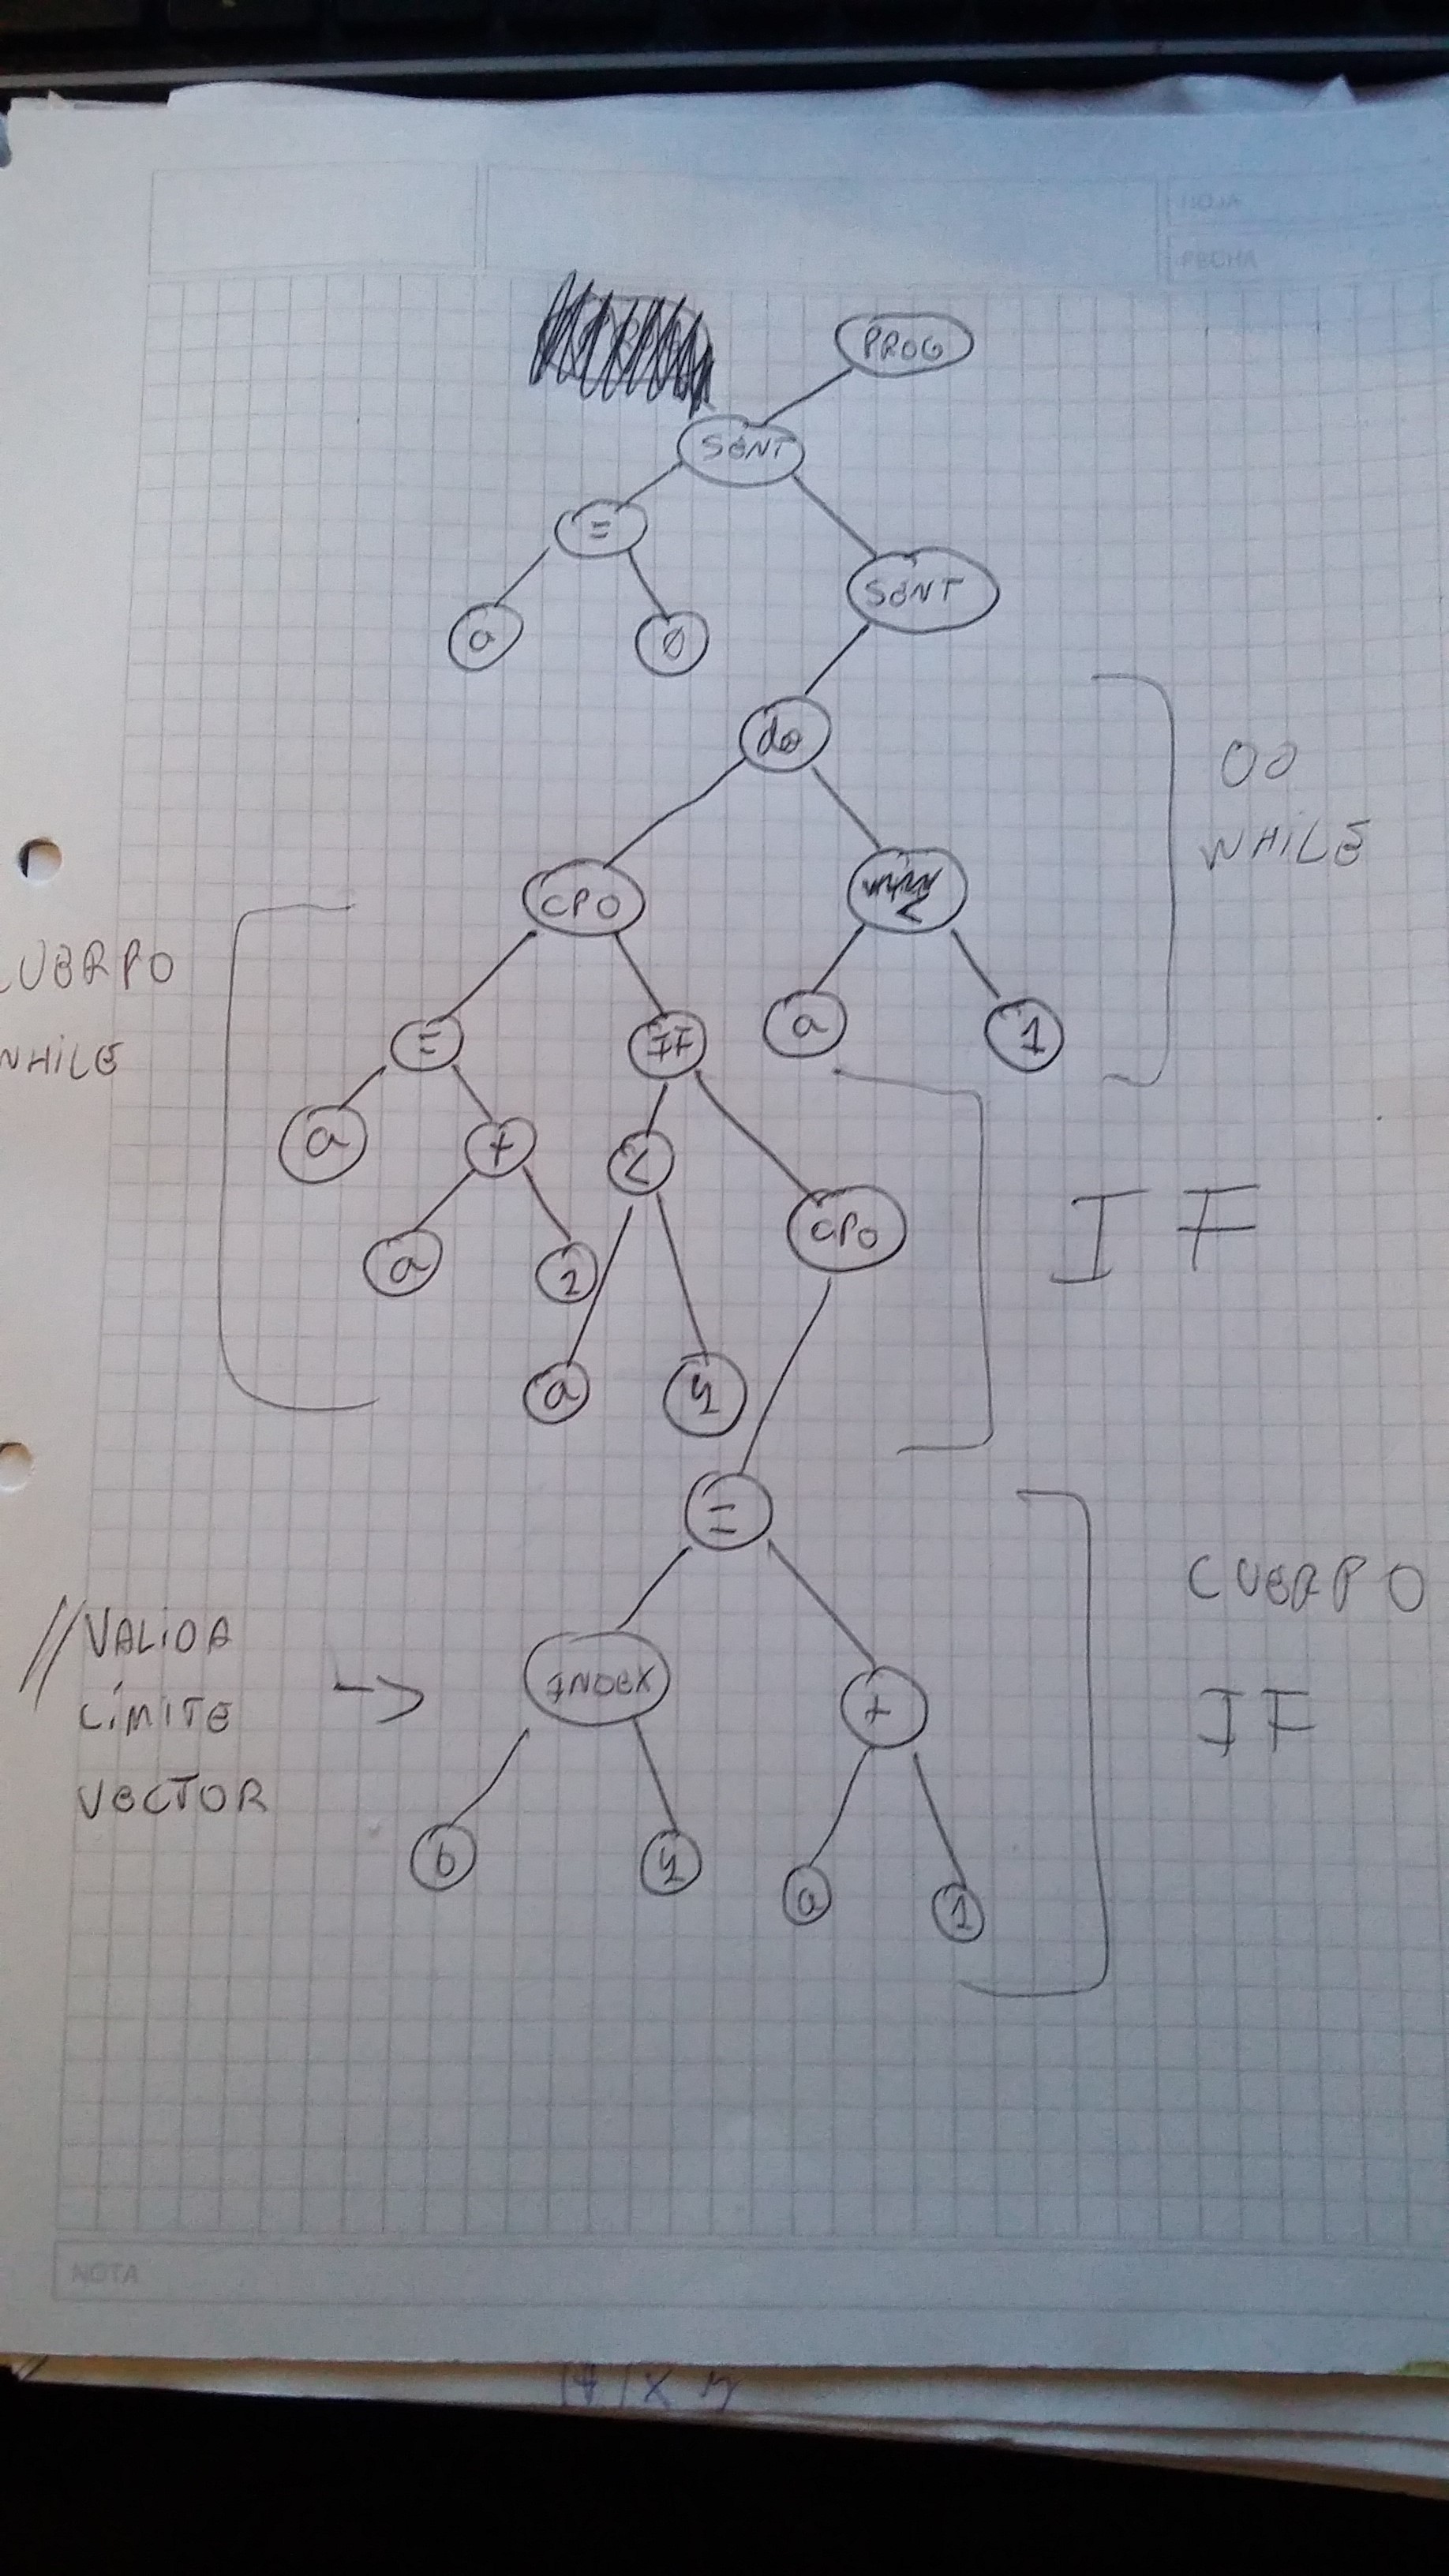 HOJA
FECHA
PROG
SENT
=
SENT
a
0
do
DO
WHILE
CPO
<
CUERPO
WHILE
=
IF
a
1
a
+
<
CPO
IF
a
2
a
4
=
CUERPO
IF
//VALIDA
LÍMITE
VECTOR
->
INDEX
+
b
4
a
1
NOTA